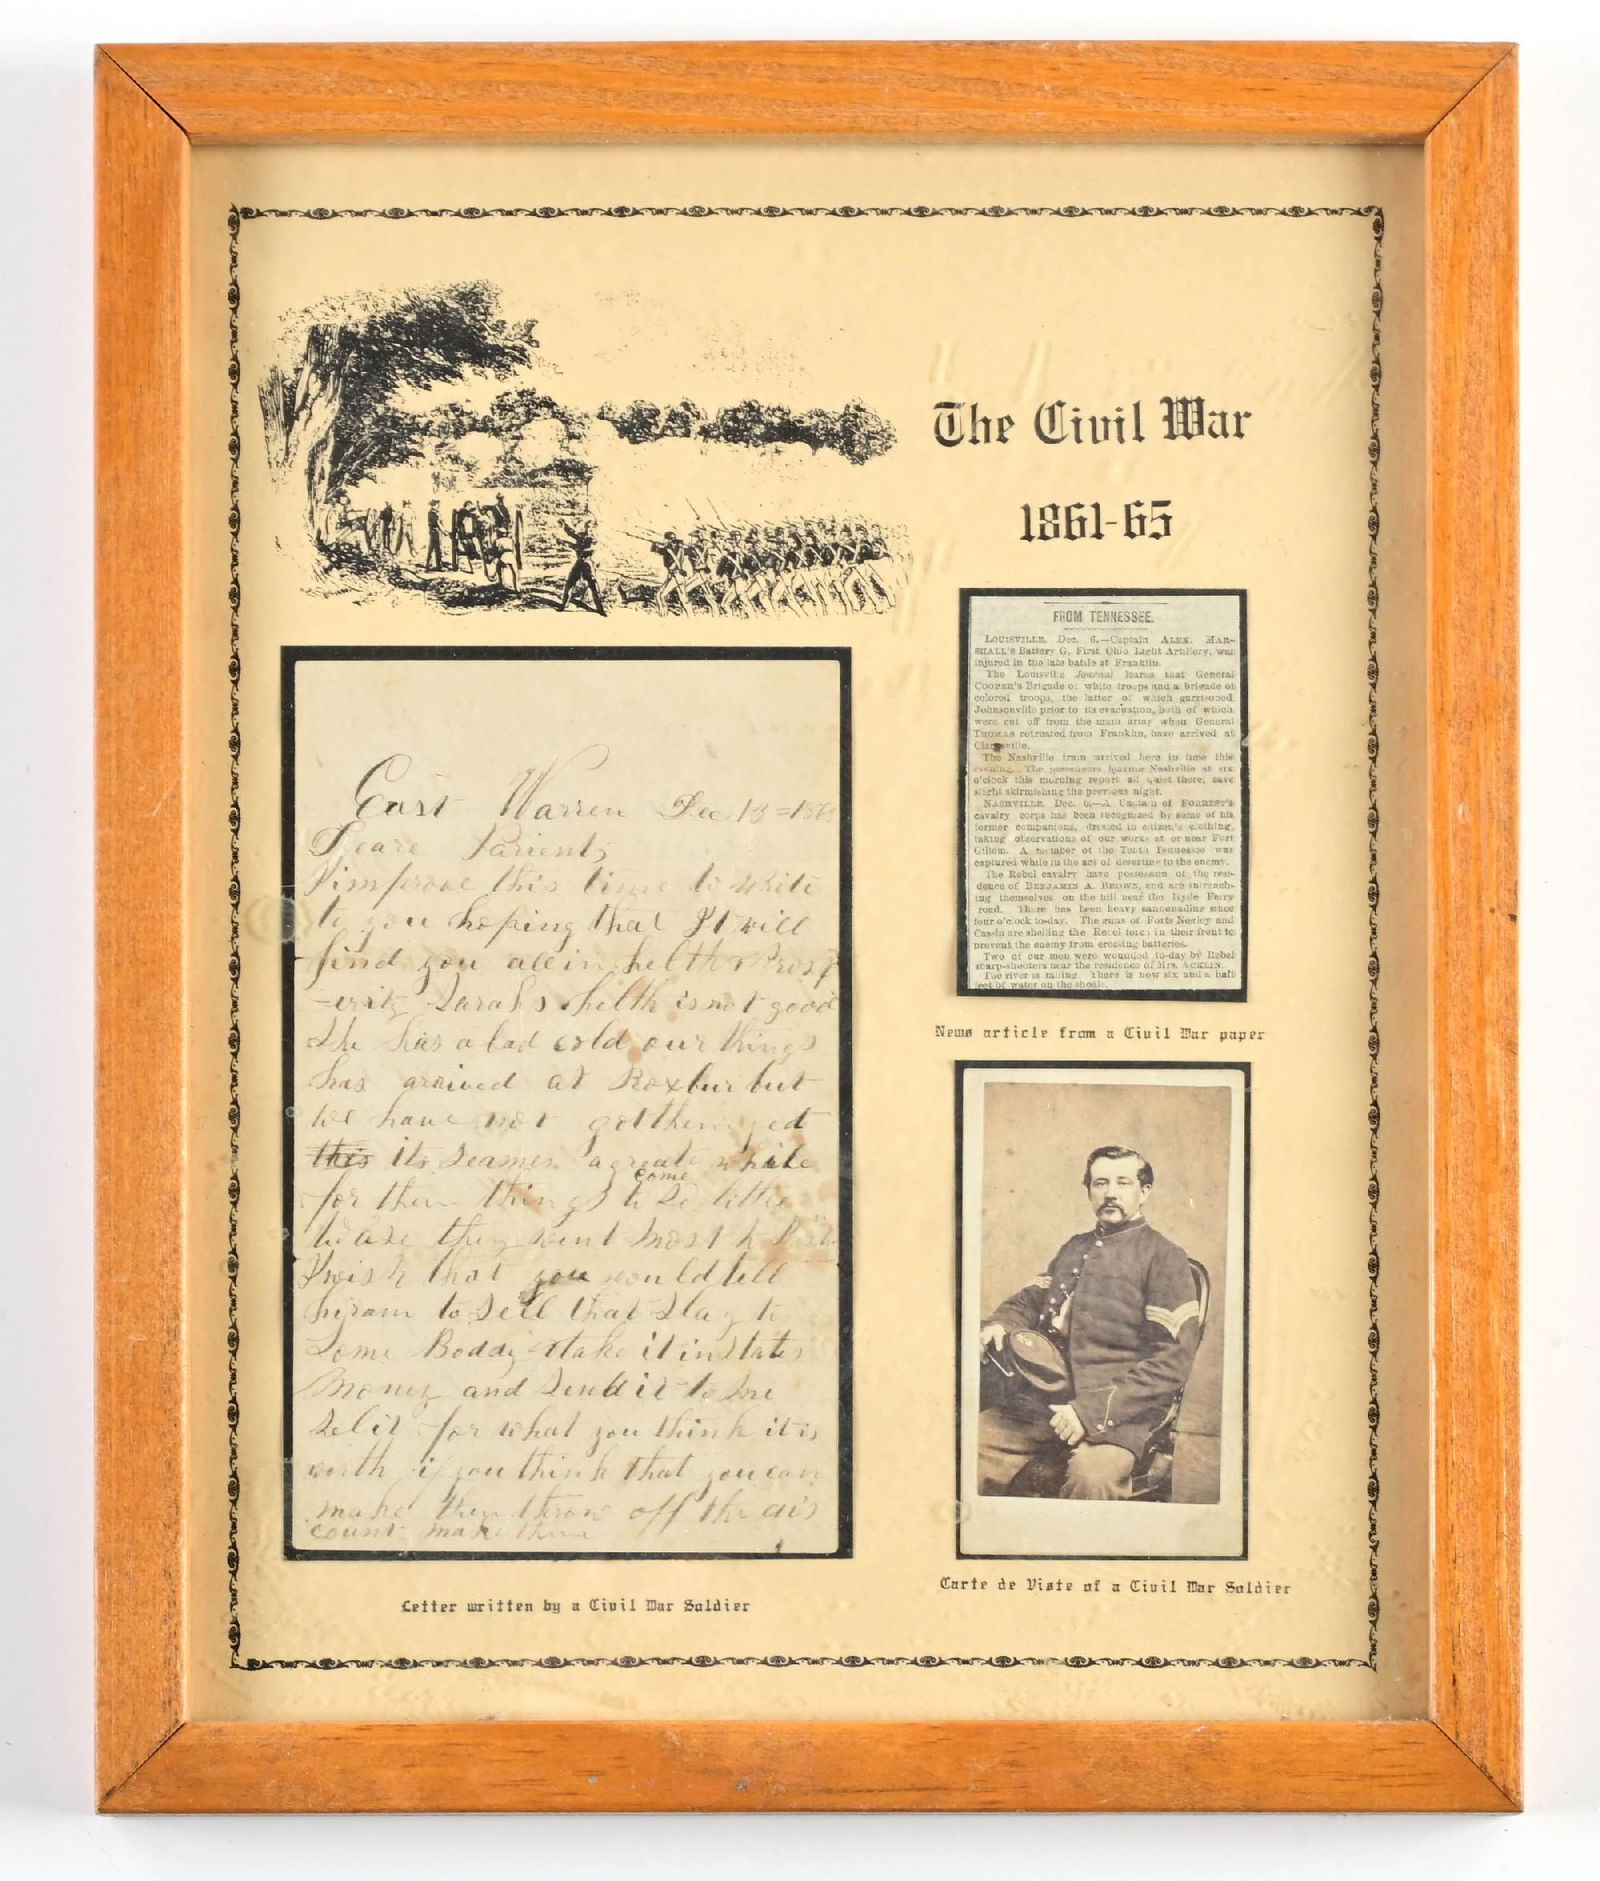 The Civil War
1861-65
FROM TENNESSEE.
LOUISVILLE, Dec. 6.—Captain ALEX. MAR-
SHALL'S Battery G, First Ohio Light Artillery, was
injured in the late battle at Franklin.
The Louisville Journal learns that General
COOPER'S Brigade of white troops and a brigade of
colored troops, the latter of which garrisoned
Johnsonville prior to its evacuation, both of which
were cut off from the main army when General
THOMAS retreated from Franklin, have arrived at
Clarksville.
The Nashville train arrived here in time this
evening. The passengers leaving Nashville at six
o'clock this morning report all quiet there, save
slight skirmishing the previous night.
NASHVILLE, Dec. 6.—A Captain of FORREST'S
cavalry corps has been recognized by some of his
former companions, dressed in citizen's clothing,
taking observations of our works at or near Fort
Gillem. A member of the Tenth Tennessee was
captured while in the act of deserting to the enemy.
The Rebel cavalry have possession of the resi-
dence of BENJAMIN A. BROWN, and are intrench-
ing themselves on the hill near the Hyde Ferry
road. There has been heavy cannonading since
four o'clock to-day. The guns of Forts Negley and
Cassin are shelling the Rebel force in their front to
prevent the enemy from erecting batteries.
Two of our men were wounded to-day by Rebel
sharp-shooters near the residence of Mrs. ACKLIN.
The river is falling. There is now six and a half
feet of water on the shoals.
News article from a Civil War paper
East Warren Dec 13=186
Deare Parients
I improve this time to write
to you hoping that It will
find you all in helth & Prosp
-erity Sarahs helth is not good
She has a bad cold our things
has arrived at Roxbur but
we have not got them yet
this its seames a greate while
for them things to come
they went most to
I wish that you would tell
hiram to sell that Slay to
Some Boddy & take it in States
Money and Send it to me
Sel it for what you think it is
worth if you think that you can
make them throw off the dis
count make them
Letter written by a Civil War Soldier
Carte de Viste of a Civil War Soldier